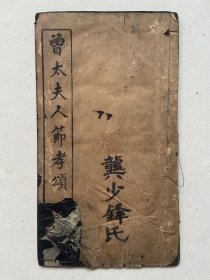 曾太夫人節孝頌
龔少鋒氏